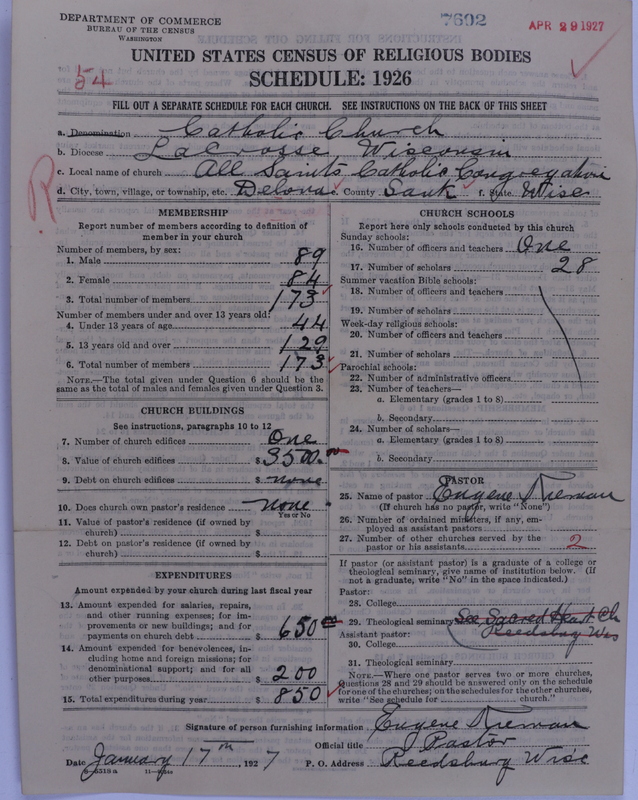 DEPARTMENT OF COMMERCE
BUREAU OF THE CENSUS
WASHINGTON
7602
APR 29 1927
UNITED STATES CENSUS OF RELIGIOUS BODIES
SCHEDULE: 1926
54
FILL OUT A SEPARATE SCHEDULE FOR EACH CHURCH. SEE INSTRUCTIONS ON THE BACK OF THIS SHEET
a. Denomination Catholic Church
b. Diocese LaCrosse Wisconsin
c. Local name of church All Saints Catholic Congregation
d. City, town, village, or township, etc. Delona e. County Sauk f. State Wisc
R
MEMBERSHIP
Report number of members according to definition of
member in your church
Number of members, by sex:
1. Male 89
2. Female 84
3. Total number of members 173
Number of members under and over 13 years old:
4. Under 13 years of age 44
5. 13 years old and over 129
6. Total number of members 173
NOTE.—The total given under Question 6 should be
same as the total of males and females given under Question 3.
CHURCH BUILDINGS
See instructions, paragraphs 10 to 12
7. Number of church edifices One
8. Value of church edifices $ 3500.00
9. Debt on church edifices $ none
10. Does church own pastor's residence none
Yes or No
11. Value of pastor's residence (if owned by
church) $
12. Debt on pastor's residence (if owned by
church) $
EXPENDITURES
Amount expended by your church during last fiscal year
13. Amount expended for salaries, repairs,
and other running expenses; for im-
provements or new buildings; and for
payments on church debt $ 650 00
14. Amount expended for benevolences, in-
cluding home and foreign missions; for
denominational support; and for all
other purposes $ 200
15. Total expenditures during year $ 850
CHURCH SCHOOLS
Report here only schools conducted by this church
Sunday schools:
16. Number of officers and teachers One
17. Number of scholars 28
Summer vacation Bible schools:
18. Number of officers and teachers
19. Number of scholars
Week-day religious schools:
20. Number of officers and teachers
21. Number of scholars
Parochial schools:
22. Number of administrative officers
23. Number of teachers—
a. Elementary (grades 1 to 8)
b. Secondary
24. Number of scholars—
a. Elementary (grades 1 to 8)
b. Secondary
PASTOR
25. Name of pastor Eugene Nieman
(If church has no pastor, write "None")
26. Number of ordained ministers, if any, em-
ployed as assistant pastors
27. Number of other churches served by the
pastor or his assistants 2
If pastor (or assistant pastor) is a graduate of a college or
theological seminary, give name of institution below. (If
not a graduate, write "No" in the space indicated.)
Pastor:
28. College
29. Theological seminary See Sacred Heart Ch
Assistant pastor: Reedsburg Wis
30. College
31. Theological seminary
NOTE.—Where one pastor serves two or more churches,
Questions 28 and 29 should be answered only on the schedule
for one of the churches; on the schedules for the other churches,
write "See schedule for church."
Signature of person furnishing information Eugene Nieman
Official title Pastor
Date January 17th, 1927 P. O. Address Reedsburg Wisc